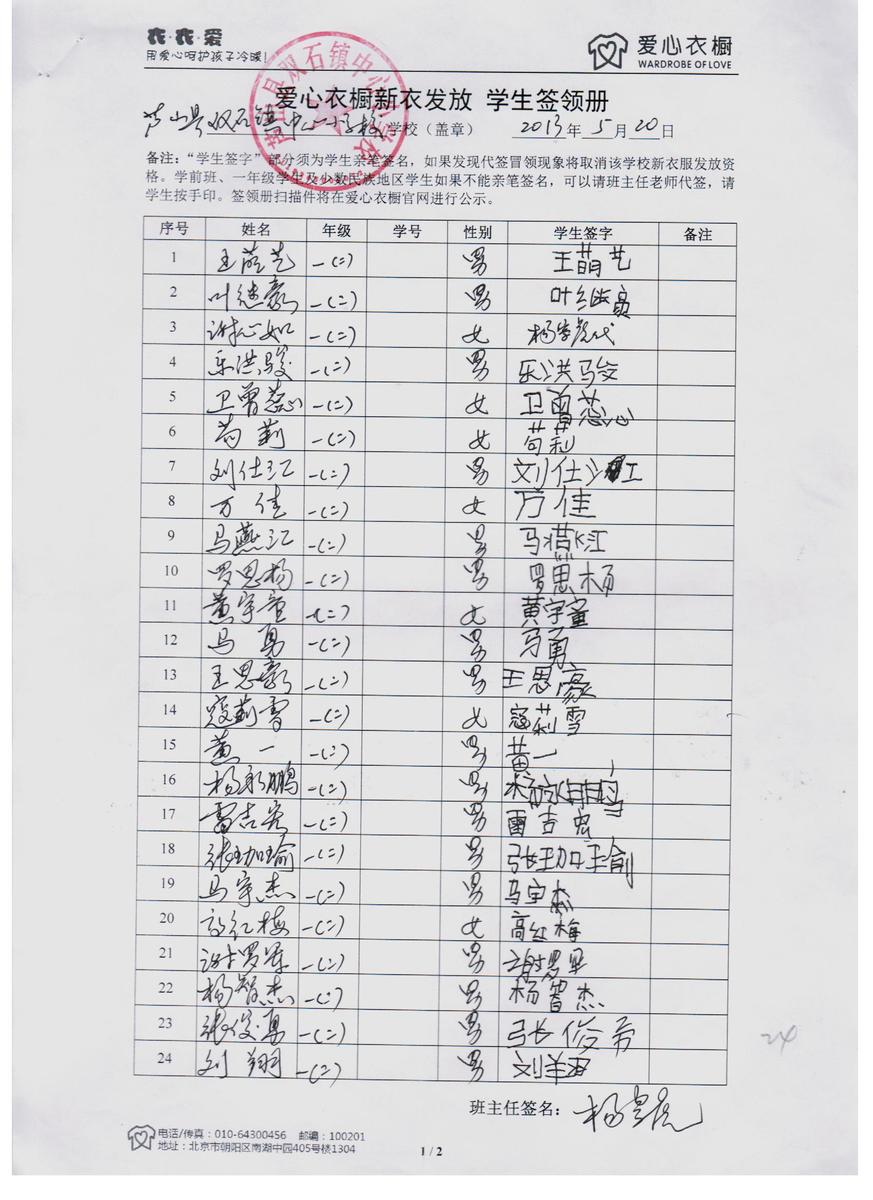 衣·衣·爱
用爱心呵护孩子冷暖!
爱心衣橱
WARDROBE OF LOVE
爱心衣橱新衣发放 学生签领册
芦山县双石镇中心小学校 学校（盖章） 2013年5月20日
备注：“学生签字”部分须为学生亲笔签名，如果发现代签冒领现象将取消该学校新衣服发放资
格。学前班、一年级学生及少数民族地区学生如果不能亲笔签名，可以请班主任老师代签，请
学生按手印。签领册扫描件将在爱心衣橱官网进行公示。
序号 姓名 年级 学号 性别 学生签字 备注
1 王萌艺 一(二) 男 王萌艺
2 叶继豪 一(二) 男 叶继豪
3 谢心如 一(二) 女 代
4 乐洪骏 一(二) 男 乐洪骏
5 卫曾蕊 一(二) 女 卫曾蕊
6 苟莉 一(二) 女 苟莉
7 刘仕江 一(二) 男 刘仕江
8 万佳 一(二) 女 万佳
9 马燕江 一(二) 男 马燕江
10 罗思杨 一(二) 男 罗思杨
11 黄宇童 一(二) 女 黄宇童
12 马勇 一(二) 男 马勇
13 王思豪 一(二) 男 王思豪
14 寇莉雪 一(二) 女 寇莉雪
15 黄一 一(二) 男 黄一
16 杨永鹏 一(二) 男 杨永鹏
17 雷吉宏 一(二) 男 雷吉宏
18 张珈瑜 一(二) 男 张珈瑜
19 马宇杰 一(二) 男 马宇杰
20 高红梅 一(二) 女 高红梅
21 谢罗 一(二) 男 谢罗
22 杨智杰 一(二) 男 杨智杰
23 张俊勇 一(二) 男 张俊勇
24 刘翔 一(二) 男 刘翔
24
班主任签名： 杨
电话/传真：010-64300456 邮编：100201
地址：北京市朝阳区南湖中园405号楼1304
1 / 2